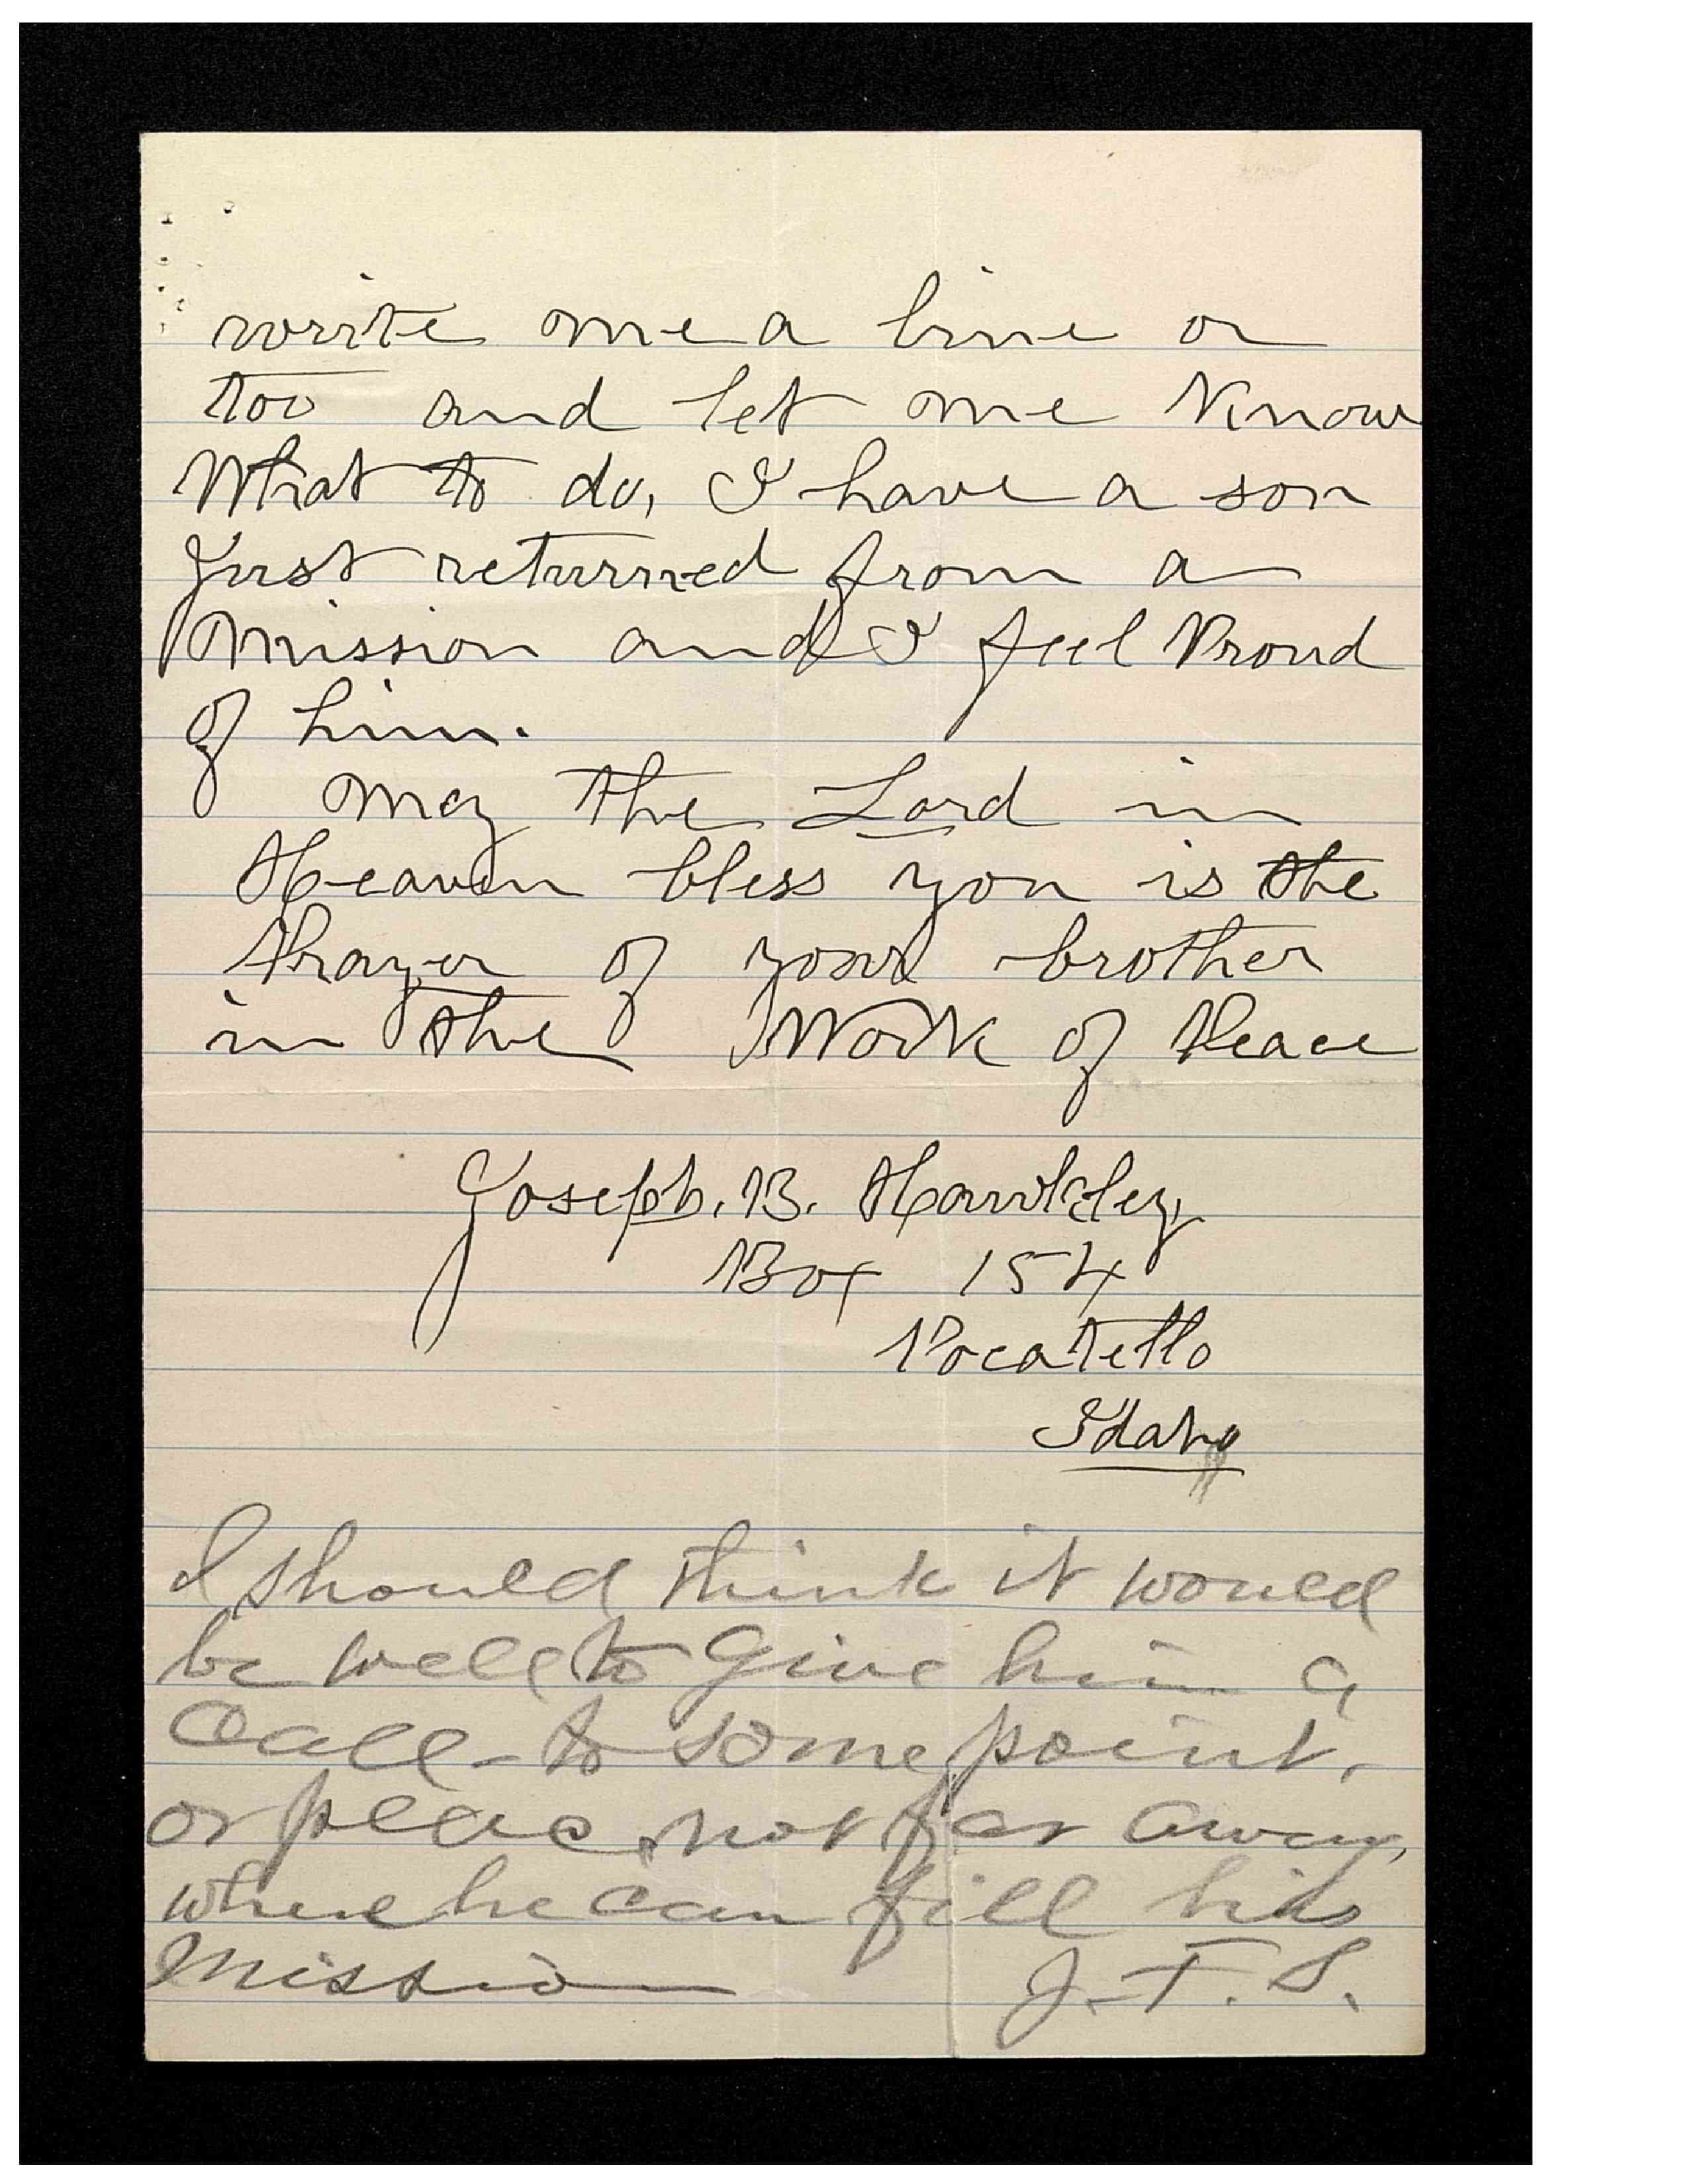 write me a line or
too and let me Know
What to do, I have a son
Just returned from a
Mission and I feel Proud
of him.
May the Lord in
Heaven bless you is the
Prayer of your brother
in the Work of Peace
Joseph. B. Hawkley
Box 154
Pocatello
Idaho
I should think it would
be well to give him a
Call - to some point,
or place, not far away,
where he can fill his
Mission J. F. S.